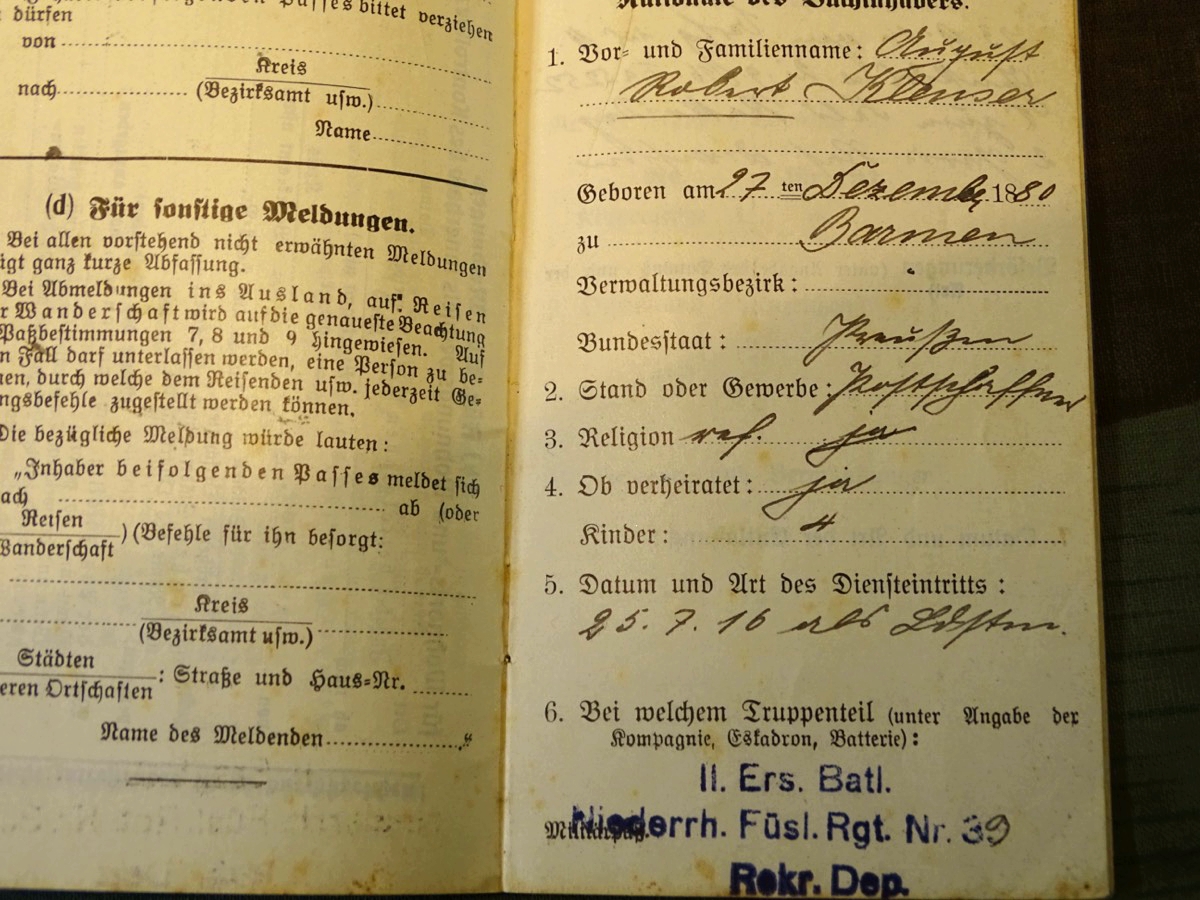 Passes bittet verziehen
dürfen
von
Kreis
nach (Bezirksamt usw.)
Name
(d) Für sonstige Meldungen.
Bei allen vorstehend nicht erwähnten Meldungen
igt ganz kurze Abfassung.
Bei Abmeldungen ins Ausland, auf Reisen
r Wanderschaft wird auf die genaueste Beachtung
Paßbestimmungen 7, 8 und 9 hingewiesen. Auf
n Fall darf unterlassen werden, eine Person zu be-
nen, durch welche dem Reisenden usw. jederzeit Ge-
ngsbefehle zugestellt werden können.
Die bezügliche Meldung würde lauten:
„Inhaber beifolgenden Passes meldet sich
ach ab (oder
Reisen
Wanderschaft ) (Befehle für ihn besorgt:
Kreis
(Bezirksamt usw.)
Städten
eren Ortschaften : Straße und Haus-Nr.
Name des Meldenden “
Nationale des Buchinhabers.
1. Vor- und Familienname: August
Robert Klenser
Geboren am 27 ten Dezemb. 1880
zu Barmen
Verwaltungsbezirk:
Bundesstaat: Preußen
2. Stand oder Gewerbe: Postschaffner
3. Religion ref. ja
4. Ob verheiratet: ja
Kinder: 4
5. Datum und Art des Diensteintritts:
25. 7. 16 als Ldstm.
6. Bei welchem Truppenteil (unter Angabe der
Kompagnie, Eskadron, Batterie):
II. Ers. Batl.
Niederrh. Füsl. Rgt. Nr. 39
Militärpaß.
Rekr. Dep.